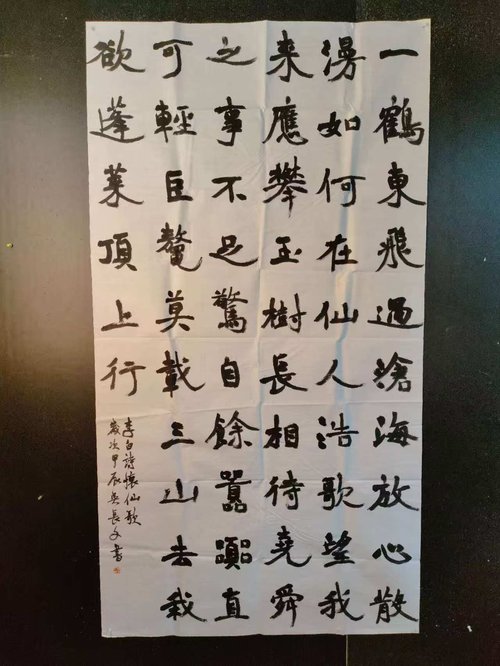 一鶴東飛過滄海放心散
漫如何在仙人浩歌望我
来應攀玉樹長相待堯舜
之事不足驚自餘囂囂直
可輕巨鼇莫載三山去我
欲蓬莱頂上行
李白詩懷仙歌
歲次甲辰吳長文書